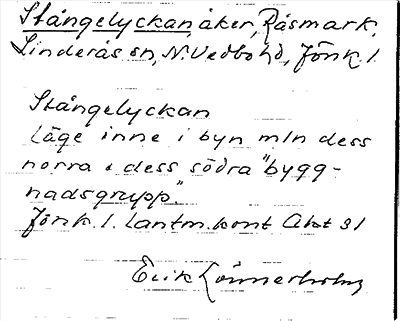 Stångelyckan, åker, Råsmark,
Linderås sn, N. Vedbo hd, Jönk. l.
Stångelyckan
Läge inne i byn mln dess
norra o dess södra "bygg-
nadsgrupp".
Jönk. l. Lantm.kont Akt 31
Erik Lönnerholm